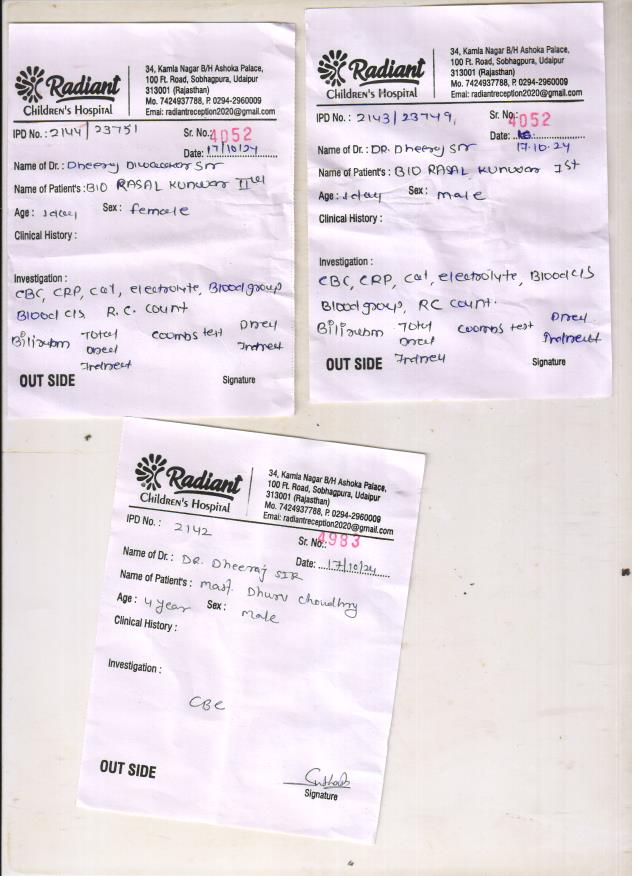 Radiant
Children's Hospital
34, Kamla Nagar B/H Ashoka Palace,
100 Ft. Road, Sobhagpura, Udaipur
313001 (Rajasthan)
Mo. 7424937788, P. 0294-2960009
Emai: radiantreception2020@gmail.com
IPD No. : 2144/23751
Sr. No.: 4052
Date: 17/10/24
Name of Dr. : Dheeraj Diwakar Sir
Name of Patient's : B/O RASAL KUNWAR IInd
Age : 1day Sex : female
Clinical History :
Investigation :
CBC, CRP, Cal, electrolyte, Blood group
Blood c/s R.C. count
Bilirubm Total Coombs test Direct
Direct Indirect
Indirect
OUT SIDE
Signature
Radiant
Children's Hospital
34, Kamla Nagar B/H Ashoka Palace,
100 Ft. Road, Sobhagpura, Udaipur
313001 (Rajasthan)
Mo. 7424937788, P. 0294-2960009
Emai: radiantreception2020@gmail.com
IPD No. : 2143/23749
Sr. No.: 4052
Date: 17.10.24
Name of Dr. : DR. Dheeraj Sir
Name of Patient's : B/O RASAL KUNWAR Ist
Age : 1day Sex : male
Clinical History :
Investigation :
CBC, CRP, Cal, electrolyte, Blood c/s
Blood group, RC count.
Bilirubm Total Coombs test Direct
Direct Indirect
Indirect
OUT SIDE
Signature
Radiant
Children's Hospital
34, Kamla Nagar B/H Ashoka Palace,
100 Ft. Road, Sobhagpura, Udaipur
313001 (Rajasthan)
Mo. 7424937788, P. 0294-2960009
Emai: radiantreception2020@gmail.com
IPD No. : 2142
Sr. No.: 4983
Date: 17/10/24
Name of Dr. : DR. Dheeraj SIR
Name of Patient's : mast. Dhuru Choudhry
Age : 4 year Sex : male
Clinical History :
Investigation :
CBC
OUT SIDE
Signature